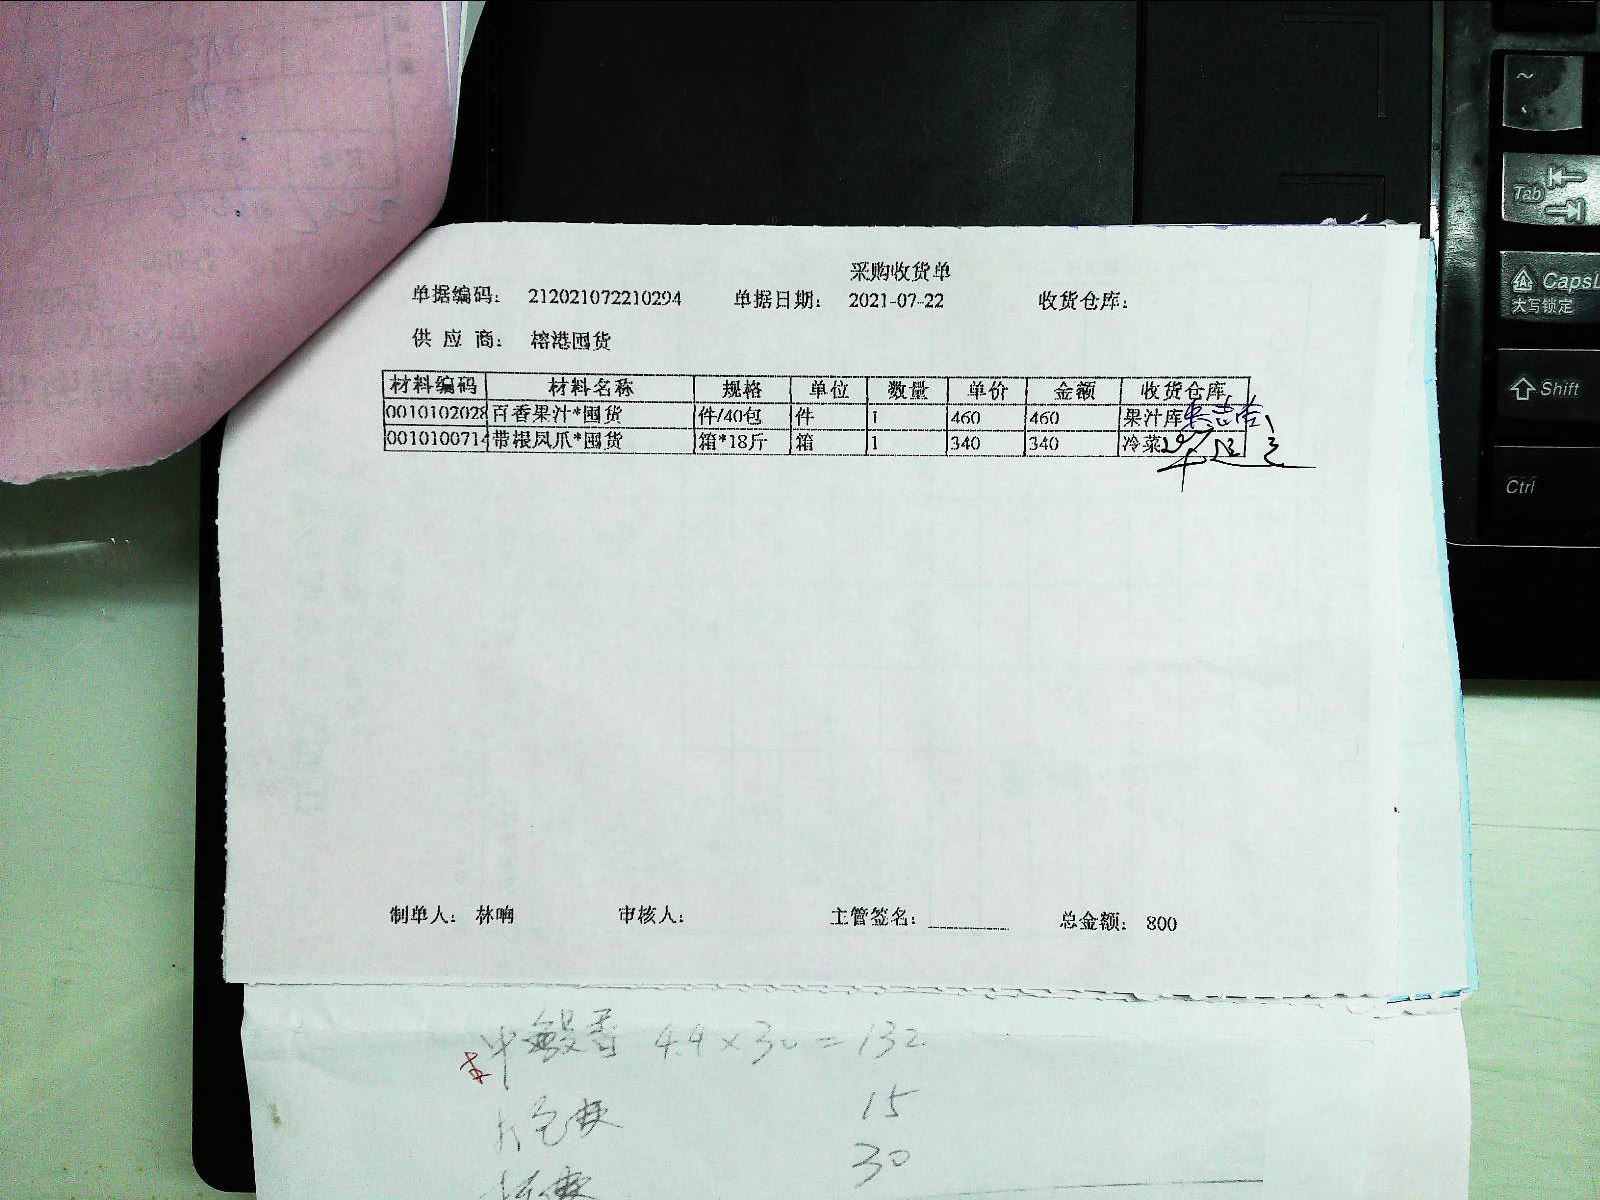 采购收货单
单据编码： 212021072210294 单据日期： 2021-07-22 收货仓库：
供 应 商： 榕港囤货
材料编码 材料名称 规格 单位 数量 单价 金额 收货仓库
0010102028 百香果汁*囤货 件/40包 件 1 460 460 果汁库
0010100714 带根凤爪*囤货 箱*18斤 箱 1 340 340 冷菜
制单人： 林响 审核人： 主管签名： 总金额： 800
中 4.4×30=132
15
30
~
Tab
CapsL
大写锁定
Shift
Ctrl